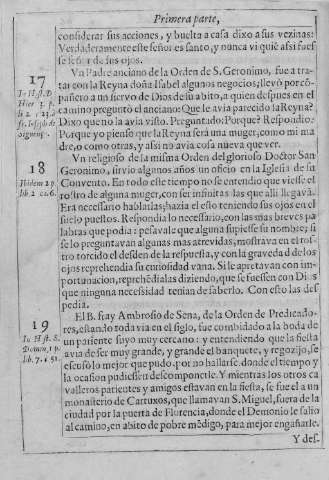 Primera parte,
considerar sus acciones, y buelta a casa dixo a sus vezinas:
Verdaderamente este señor es santo, y nunca vi quiē assi fuesse
señor de sus ojos.
17
In Hist. D.
Hier. 3. p.
fr. Ioseph de
Siguença.
Vn Padre anciano de la Orden de S. Geronimo, fue a tra-
tar con la Reyna doña Isabel algunos negocios; llevò por cō-
pañero a un siervo de Dios de su abito, a quien despues en el
camino preguntò el anciano: Que le avia parecido la Reyna?
Dixo que no la avia visto. Preguntado: Porque? Respondio:
Porque yo pienso que la Reyna serà una muger, como mi ma
dre, o como otras, y assi no avia cosa nueva que ver.
18
Vn religioso de la misma Orden del glorioso Doctor San
Geronimo, sirvio algunos años un oficio en la Iglesia de su
Convento. En todo este tiempo no se entendio que viesse el
rostro de alguna muger, con ser infinitas las que alli llegavā.
Era necessario hablarlas; hazia el esto teniendo sus ojos en el
suelo puestos. Respondia lo necessario, con las mas breves pa
labras que podia: pesavale que alguna supiesse su nombre; si
se lo preguntavan algunas mas atrevidas, mostrava en el ros-
tro torcido el desden de la respuesta, y con la gravedad de los
ojos reprehendia su curiosidad vana. Si le apretavan con im-
portunacion, reprehēdialas diziendo, que se fuessen con Dios
que ninguna necessidad tenian de saberlo. Con esto las des
pedia.
19
In Hist. S.
Domin. 1 p.
lib. 7. c. 51.
El B. fray Ambrosio de Sena, de la Orden de Predicado-
res, estando todavia en el siglo, fue combidado a la boda de
un pariente suyo muy cercano: y entendiendo que la fiesta
avia de ser muy grande, y grande el banquete, y regozijo, se
escusò lo mejor que pudo, por no hallarse donde el tiempo y
la ocasion pudiessen descomponerle. Y mientras los otros ca
valleros parientes y amigos estavan en la fiesta, se fue el a un
monasterio de Cartuxos, que llamavan S. Miguel, fuera de la
ciudad por la puerta de Florencia, donde el Demonio le salio
al camino, en abito de pobre mēdigo, para mejor engañarle.
Y des-